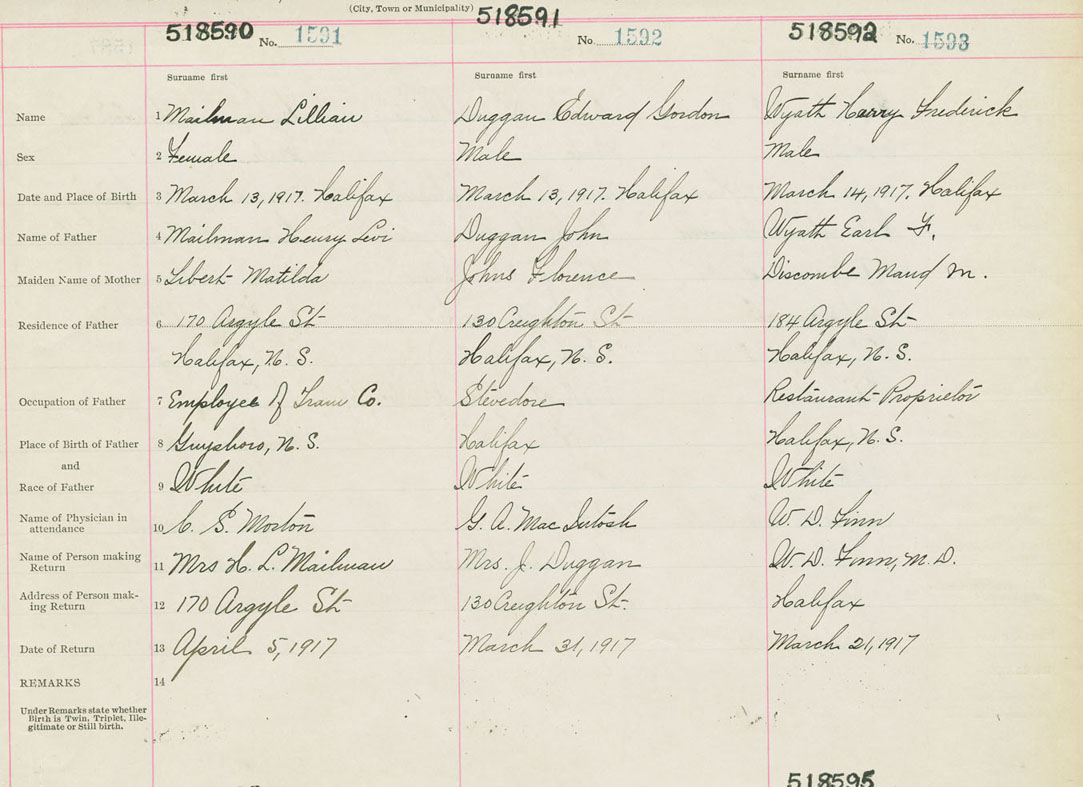 (City, Town or Municipality)
518590 No. 1591 518591 No. 1592 518592 No. 1593
Surname first Surname first Surname first
Name 1 Mailman Lillian Duggan Edward Gordon Wyath Harry Frederick
Sex 2 Female Male Male
Date and Place of Birth 3 March 13, 1917. Halifax March 13, 1917. Halifax March 14, 1917. Halifax
Name of Father 4 Mailman Henry Levi Duggan John Wyath Earl F.
Maiden Name of Mother 5 Libert Matilda Johns Florence Discombe Maud M.
Residence of Father 6 170 Argyle St 130 Creighton St 184 Argyle St
Halifax, N. S. Halifax, N. S. Halifax, N. S.
Occupation of Father 7 Employee of Tram Co. Stevedore Restaurant Proprietor
Place of Birth of Father 8 Guysboro, N. S. Halifax Halifax, N. S.
and
Race of Father 9 White White White
Name of Physician in
attendance 10 C. S. Morton G. A. MacIntosh W. D. Finn
Name of Person making
Return 11 Mrs H. L. Mailman Mrs. J. Duggan W. D. Finn, M. D.
Address of Person mak-
ing Return 12 170 Argyle St 130 Creighton St. Halifax
Date of Return 13 April 5, 1917 March 31, 1917 March 21, 1917
REMARKS 14
Under Remarks state whether
Birth is Twin, Triplet, Ille-
gitimate or Still birth.
518595